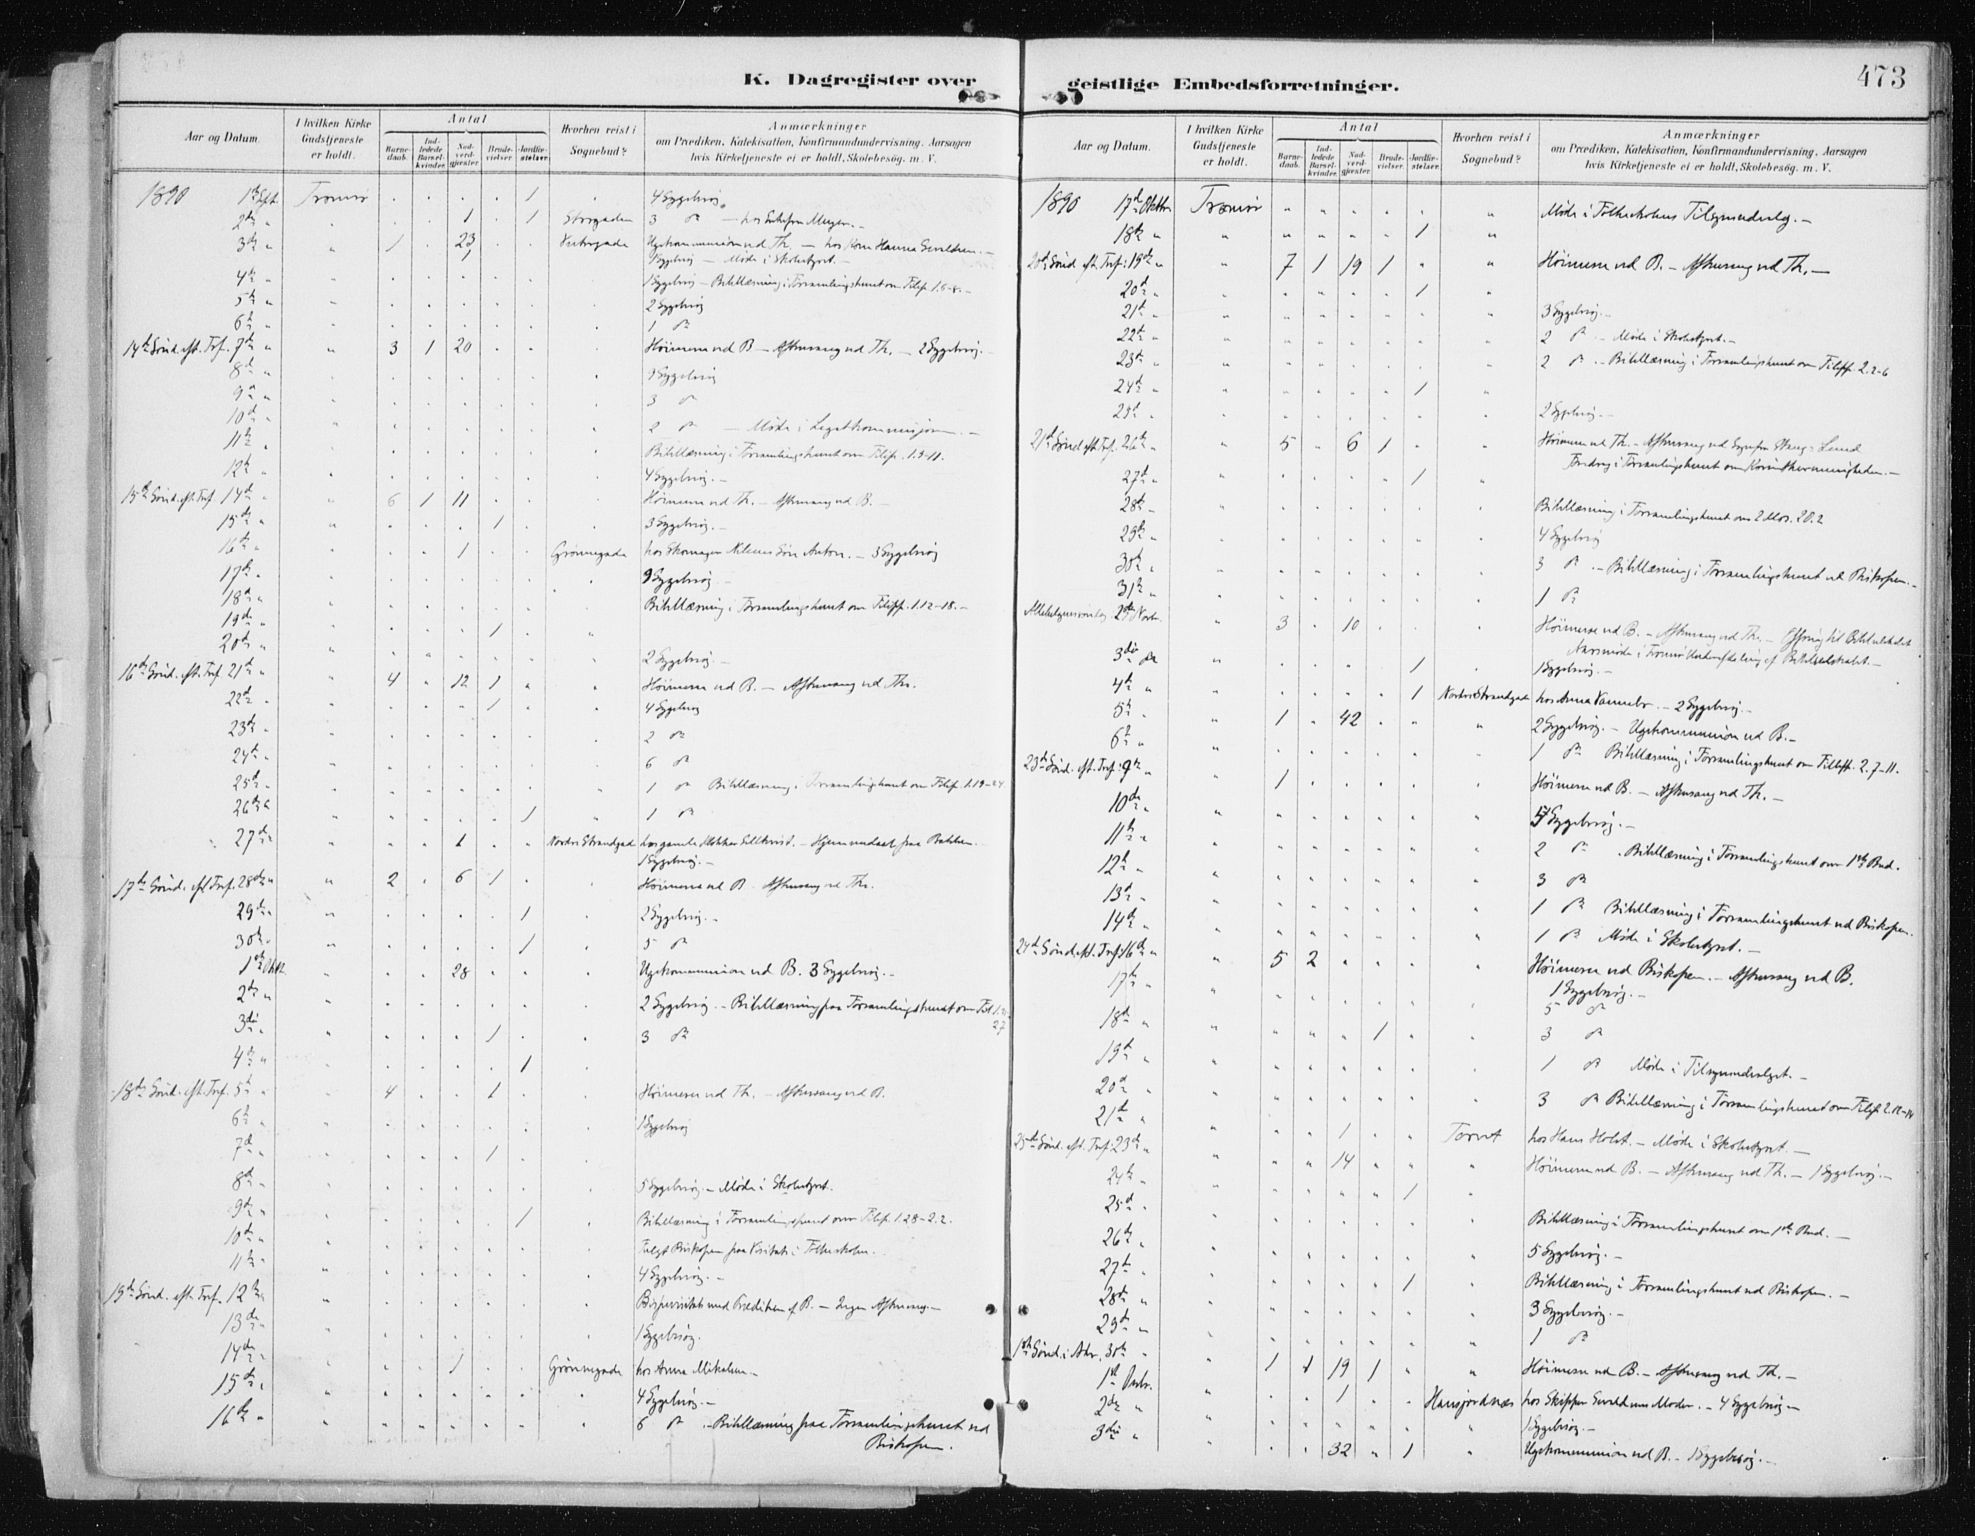 K. Dagregister over geistlige Embedsforretninger.
473
Aar og Datum.
I hvilken Kirke Gudstjeneste er holdt.
Antal
Barnedaab.
Indledede Barselkvinder.
Nadverdgjester.
Brudevielser.
Jordfæstelser.
Hvorhen reist i Sognebud?
Anmærkninger
om Prædiken, Katekisation, Konfirmandundervisning, Aarsagen
hvis Kirketjeneste ei er holdt, Skolebesøg. m. V.
1890 1ste Sept. Tromsø " " " " 1 4 Sygebesøg.
2den " " " 1 " 1 Storgaden 3 do
3die " 1 " 23 " " Vestregade Ugekommunion ved Th. — hos Kone Hanna
1 Sygebesøg — Møde i Skolestyret. —
4de " 1 Sygebesøg — Bibellæsning i Forsamlingshuset om Filip. 1.6-8. —
5te " 2 Sygebesøg
6te " 1 do
14de Sønd. eft. Tref. 7de " 3 1 20 Høimesse ved B — Aftensang ved Th. — 2 Sygebesøg.
8de " Sygebesøg
9de " 3 do
10de " 2 do — Møde i Legatkommissionen. —
11te " Bibellæsning i Forsamlingshuset om Filip. 1.9-11.
12te " 4 Sygebesøg. —
15de Sønd. eft. Tref. 14de " 6 1 11 Høimesse ved Th. — Aftensang ved B. —
15de " 1 3 Sygebesøg. —
16de " 1 Grønnegade hos Skomager Nilsens Søn Anton. — 3 Sygebesøg
17de " Sygebesøg —
18de " Bibellæsning i Forsamlingshuset om Filipp. 1.12-18. —
19de " 1
20de " 2 Sygebesøg. —
16de Sønd. eft. Tref. 21de " 4 " 12 1 Høimesse ved B. — Aftensang ved Th.
22de " 1 4 Sygebesøg
23de " 2 do
24de " 6 do
25de " 1 do Bibellæsning i Forsamlingshuset om Filip. 1.19-24
26de " 1 1 do
27de " 1 Nordre Strandgad hos gamle — Hjemvendset fra Bakken.
1 Sygebesøg. —
17de Sønd. eft Tref. 28de " 2 " 6 1 Høimesse ved B. Aftensang ved Th.
29de " 1 2 Sygebesøg. —
30te " 1 5 do
1ste Oktb. 28 Ugekommunion ved B. 3 Sygebesøg. —
2den " 2 Sygebesøg. — Bibellæsning paa Forsamlingshuset om Fil. 1.
27
3die " 1 3 do
4de " 1
18de Sønd. eft. Tref. 5te " 4 " " 1 Høimesse ved Th. — Aftensang ved B.
6te " 1 Sygebesøg
7de " 1
8de " 5 Sygebesøg. — Møde i Skolestyret.
9de " 1 Bibellæsning i Forsamlingshuset om Filip. 1.28-2.2.
10de " Fulgt Biskopen paa Visitats i Folkeskolen.
11te " 4 Sygebesøg. —
19de Sønd. eft. Tref. 12te " Bispevisitats med Prædiken af B. — Ingen Aftensang. —
13de " 1 Sygebesøg.
14de " 1 Grønnegade hos Anna Mikalsen. —
15de " 4 Sygebesøg. —
16de " 6 do — Bibellæsning paa Forsamlingshuset ved
Biskopen.
Aar og Datum.
I hvilken Kirke Gudstjeneste er holdt.
Antal
Barnedaab.
Indledede Barselkvinder.
Nadverdgjester.
Brudevielser.
Jordfæstelser.
Hvorhen reist i Sognebud?
Anmærkninger
om Prædiken, Katekisation, Konfirmandundervisning, Aarsagen
hvis Kirketjeneste ei er holdt, Skolebesøg. m. V.
1890 17de Oktbr. Tromsø Møde i Folkeskolens Tilsynsudvalg. —
18de " 1
20de Sønd. eft. Tref: 19de " 7 1 19 1 Høimesse ved B. — Aftensang ved Th. —
20de " 1
21de " 3 Sygebesøg. —
22de " 2 do — Møde i Skolestyret. —
23de " 2 do — Bibellæsning i Forsamlingshuset om Filipp. 2.2-6
24de " 1
25de " 2 Sygebesøg. —
21de Sønd. eft. Tref. 26de " 5 " 6 1 Høimesse ved Th. — Aftensang ved Lund
Foredrag i Forsamlingshuset om —
27de " 1
28de " Bibellæsning i Forsamlingshuset om 2 Mos. 20.2
29de " 4 Sygebesøg
30te " 3 do — Bibellæsning i Forsamlingshuset ved Biskopen. —
31te " 1 do
Allehelgenssøndag 2den Novbr. 3 " 10 Høimesse ved B. — Aftensang ved Th. — Ofring til Bibelselskabet
Aarsmøde i Tromsø af Bibelselskabet. —
3die " 1 1 Sygebesøg. —
4de " 1 Nordre Strandgade hos Anna — 2 Sygebesøg. —
5te " 1 " 42 2 Sygebesøg. — Ugekommunion ved B. —
6te " 1 do Bibellæsning i Forsamlingshuset om Filipp. 2.7-11.
23de Sønd. eft. Tref: 9de " 1 Høimesse ved B. — Aftensang ved Th. —
10de " Sygebesøg. —
11te " 2 do . Bibellæsning i Forsamlingshuset om 1ste Bud.
12te " 3 do
13de " 1 do Bibellæsning i Forsamlingshuset ved Biskopen.
14de " 1 do Møde i Skolestyret. —
24de Sønd. eft. Tref: 16de " 5 2 Høimesse ved Biskopen. — Aftensang ved B.
17de " 1 Sygebesøg. —
5 do
18de " 1 3 do
19de " 1 do Møde i Tilsynsudvalget. —
20de " 3 do Bibellæsning i Forsamlingshuset om Filip 2.12-14
21de " 1 Torvet hos Hans Holst. — Møde i Skolestyret. —
25de Sønd. eft. Tref: 23de " 14 Høimesse ved B. — Aftensang ved Th. — 1 Sygebesøg. —
24de " 1
25de " Bibellæsning i Forsamlingshuset om 1ste Bud. —
26de " 5 Sygebesøg. —
27de " 1 Bibellæsning i Forsamlingshuset ved Biskopen. —
28de " 3 Sygebesøg. —
29de " 1 do
1ste Sønd. i Adv. 30te " 1 1 19 1 Høimesse ved B. — Aftensang ved Th. —
1ste Decbr. 1 Hansjordnæs hos Skipper Moder. — 4 Sygebesøg —
2den " 1 Sygebesøg. —
3die " 32 " 1 Ugekommunion ved B. — 1 Sygebesøg. —